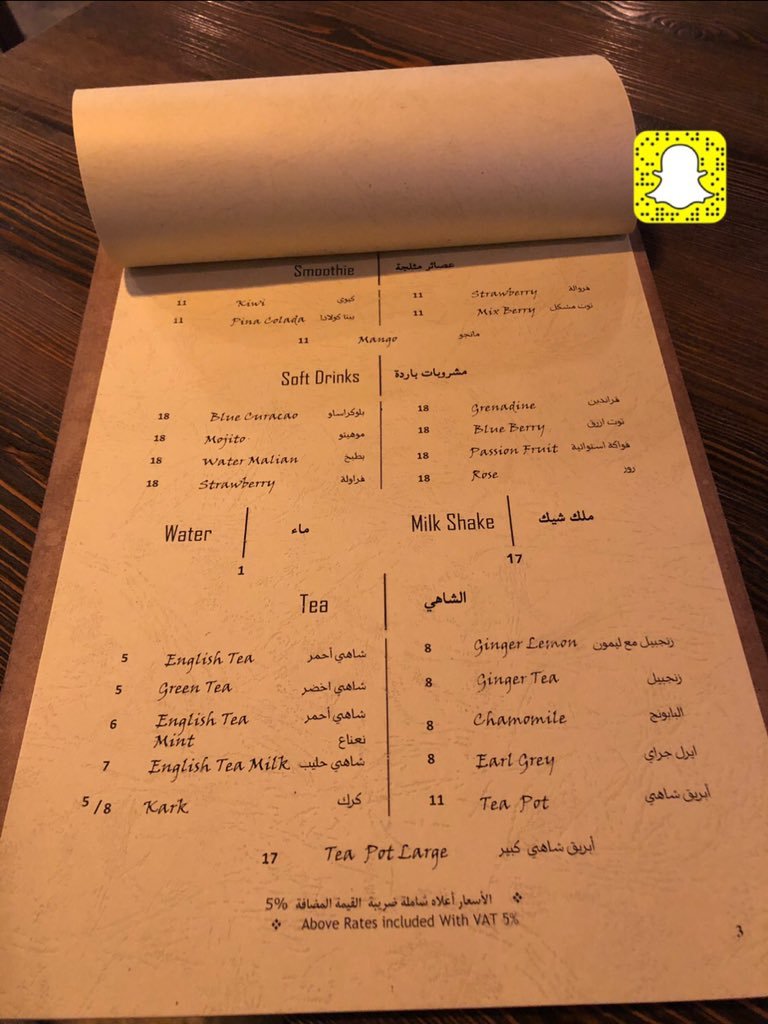 Smoothie عصائر مثلجة
11 Kiwi كيوي 11 Strawberry فروالة
11 Pina Colada بينا كولادا 11 Mix Berry توت مشكل
11 Mango مانجو
Soft Drinks مشروبات باردة
18 Blue Curacao بلوكراساو 18 Grenadine
18 Mojito موهيتو 18 Blue Berry توت ازرق
18 Water Malian بطيخ 18 Passion Fruit فواكة استوائية
18 Strawberry فراولة 18 Rose روز
Water ماء Milk Shake ملك شيك
1 17
Tea الشاهي
5 English Tea شاهي أحمر 8 Ginger Lemon زنجبيل مع ليمون
5 Green Tea شاهي اخضر 8 Ginger Tea زنجبيل
6 English Tea شاهي أحمر 8 Chamomile البابونج
Mint نعناع
7 English Tea Milk شاهي حليب 8 Earl Grey ايرل جراي
5/8 Kark كرك 11 Tea Pot أبريق شاهي
17 Tea Pot Large أبريق شاهي كبير
❖ الأسعار أعلاه شاملة ضريبة القيمة المضافة 5%
❖ Above Rates included With VAT 5%
3